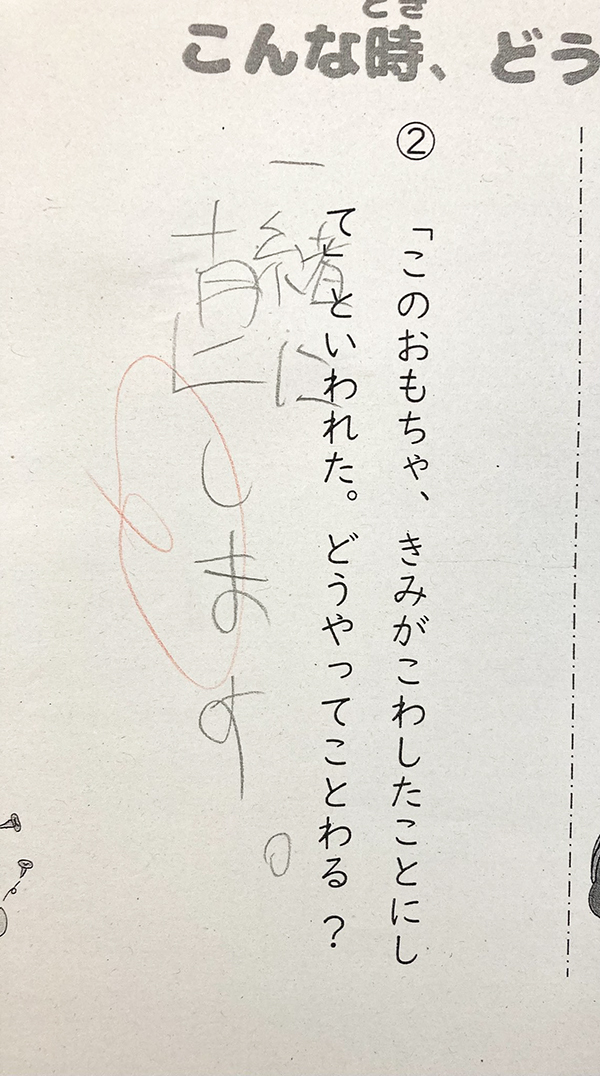 とき
こんな時、どう
②
「このおもちゃ、きみがこわしたことにし
て」といわれた。どうやってことわる?
一緒に
直します。